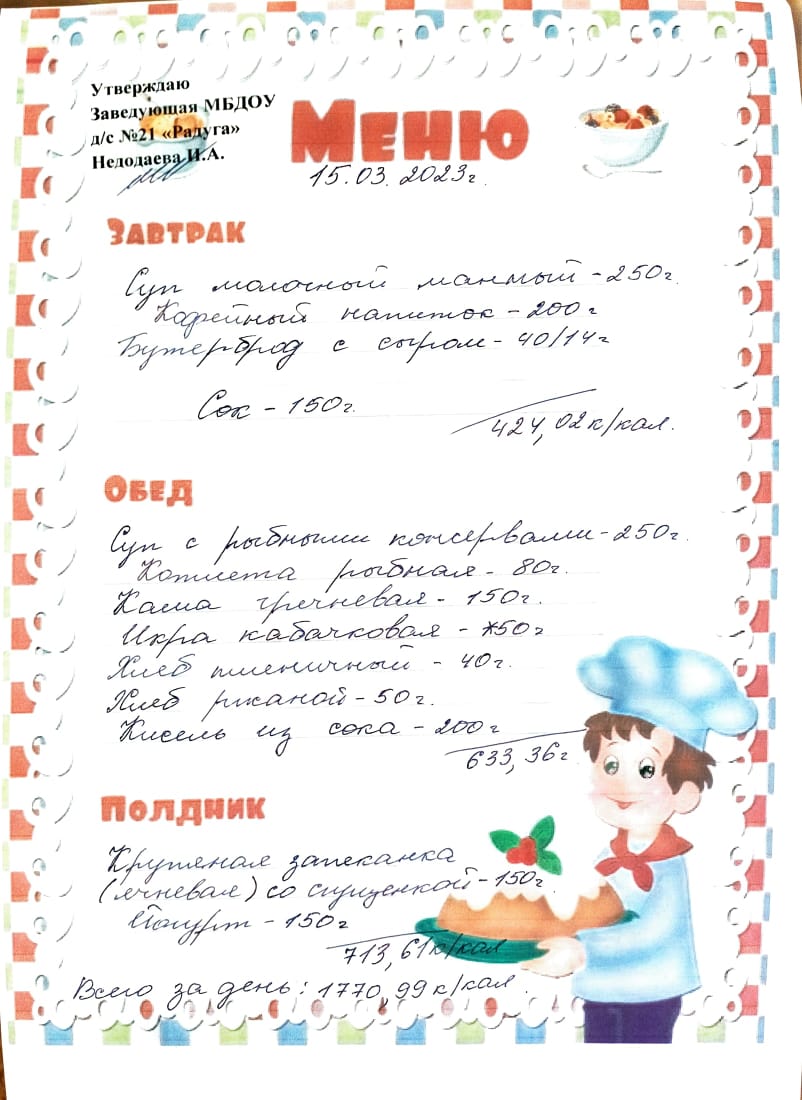 Утверждаю
Заведующая МБДОУ
д/с №21 «Радуга»
Недодаева И.А.
Меню
15.03.2023г.
Завтрак
Суп молочный манный - 250г.
Кофейный напиток - 200г
Бутерброд с сыром - 40/14г
Сок - 150г.
424,02к/кал.
Обед
Суп с рыбными консервами - 250г.
Котлета рыбная - 80г.
Каша гречневая - 150г.
Икра кабачковая - 50г
Хлеб пшеничный - 40г.
Хлеб ржаной - 50г.
Кисель из сока - 200г
633,36г.
Полдник
Крупяная запеканка
(ячневая) со сгущенкой - 150г.
Йогурт - 150г
713,61к/кал
Всего за день: 1770,99к/кал.